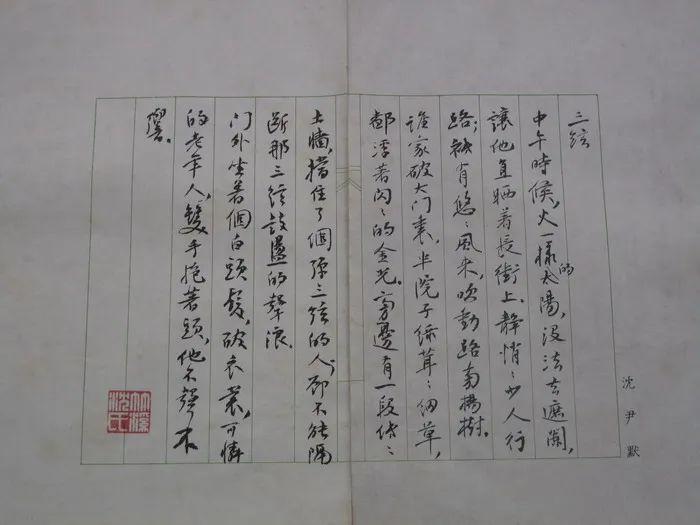 沈尹默
三弦
中午時候,火一樣的太陽,没法去遮闌,
讓他直晒着長街上。静悄〻少人行
路;祇有悠〻風来,吹動路南楊樹。
誰家破大门裏,半院子綠茸〻細草,
都浮著闪〻的金光。旁邊有一段低〻
土牆,擋住了個弹三弦的人,却不能隔
断那三弦鼓盪的聲浪。
门外坐着個白頭髮,破衣裳,可憐
的老年人,雙手抱著頭,他不聲不
響。
竹溪沈氏